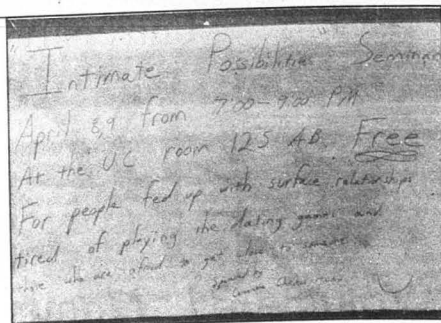 "Intimate Possibilities" Seminar
April 8,9 from 7:00-9:00 PM
At the U.C. room 125 AB. Free
For people fed up with surface relationships
tired of playing the dating games and
those who are afraid to get close to someone
sponsored by